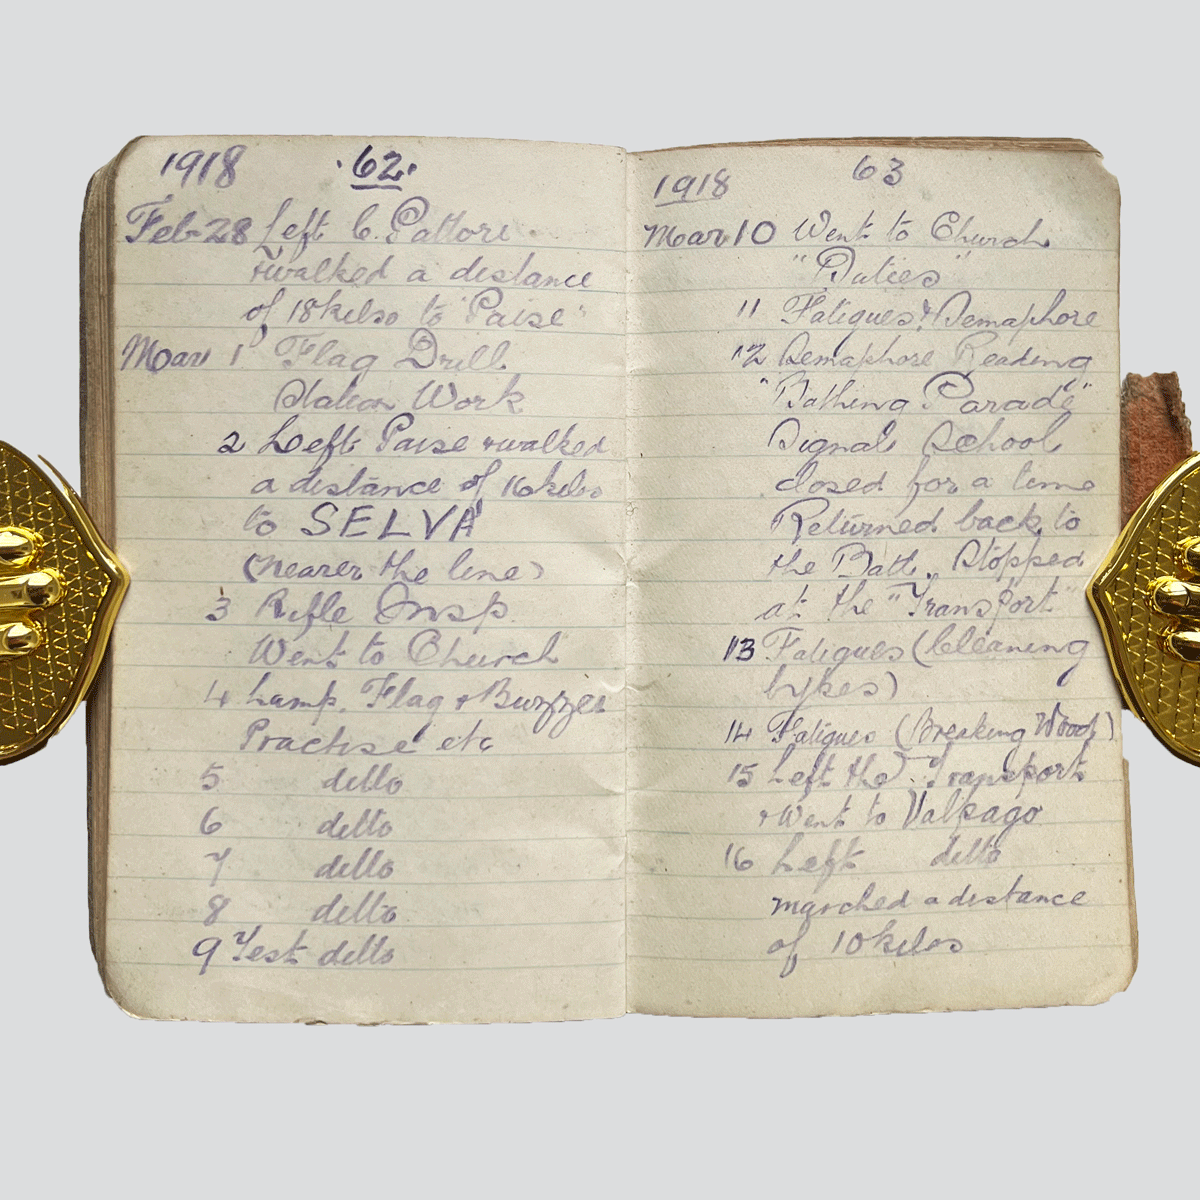 1918 ·62·
Feb-28 Left C. Pattori.
+walked a distance
of 18 kilso to "Paise"
Mar 1 Flag Drill
Station Work
2 Left Paise +walked
a distance of 16 kilos
to SELVA
(nearer the line)
3 Rifle Insp.
Went to Church
4 Lamp, Flag + Buzzer
Practise etc
5 ditto
6 ditto
7 ditto
8 ditto
9 Test ditto
1918 63
Mar 10 Went to Church
"Duties"
11 Fatigues + Semaphore
12 Semaphore Reading
"Bathing Parade"
Signal School
closed for a time
Returned back to
the Batt. Stopped
at the "Transport"
13 Fatigues (Cleaning
bykes)
14 Fatigues (Breaking Wood)
15 Left the Transport
+Went to Valpago
16 Left ditto
marched a distance
of 10 kilos